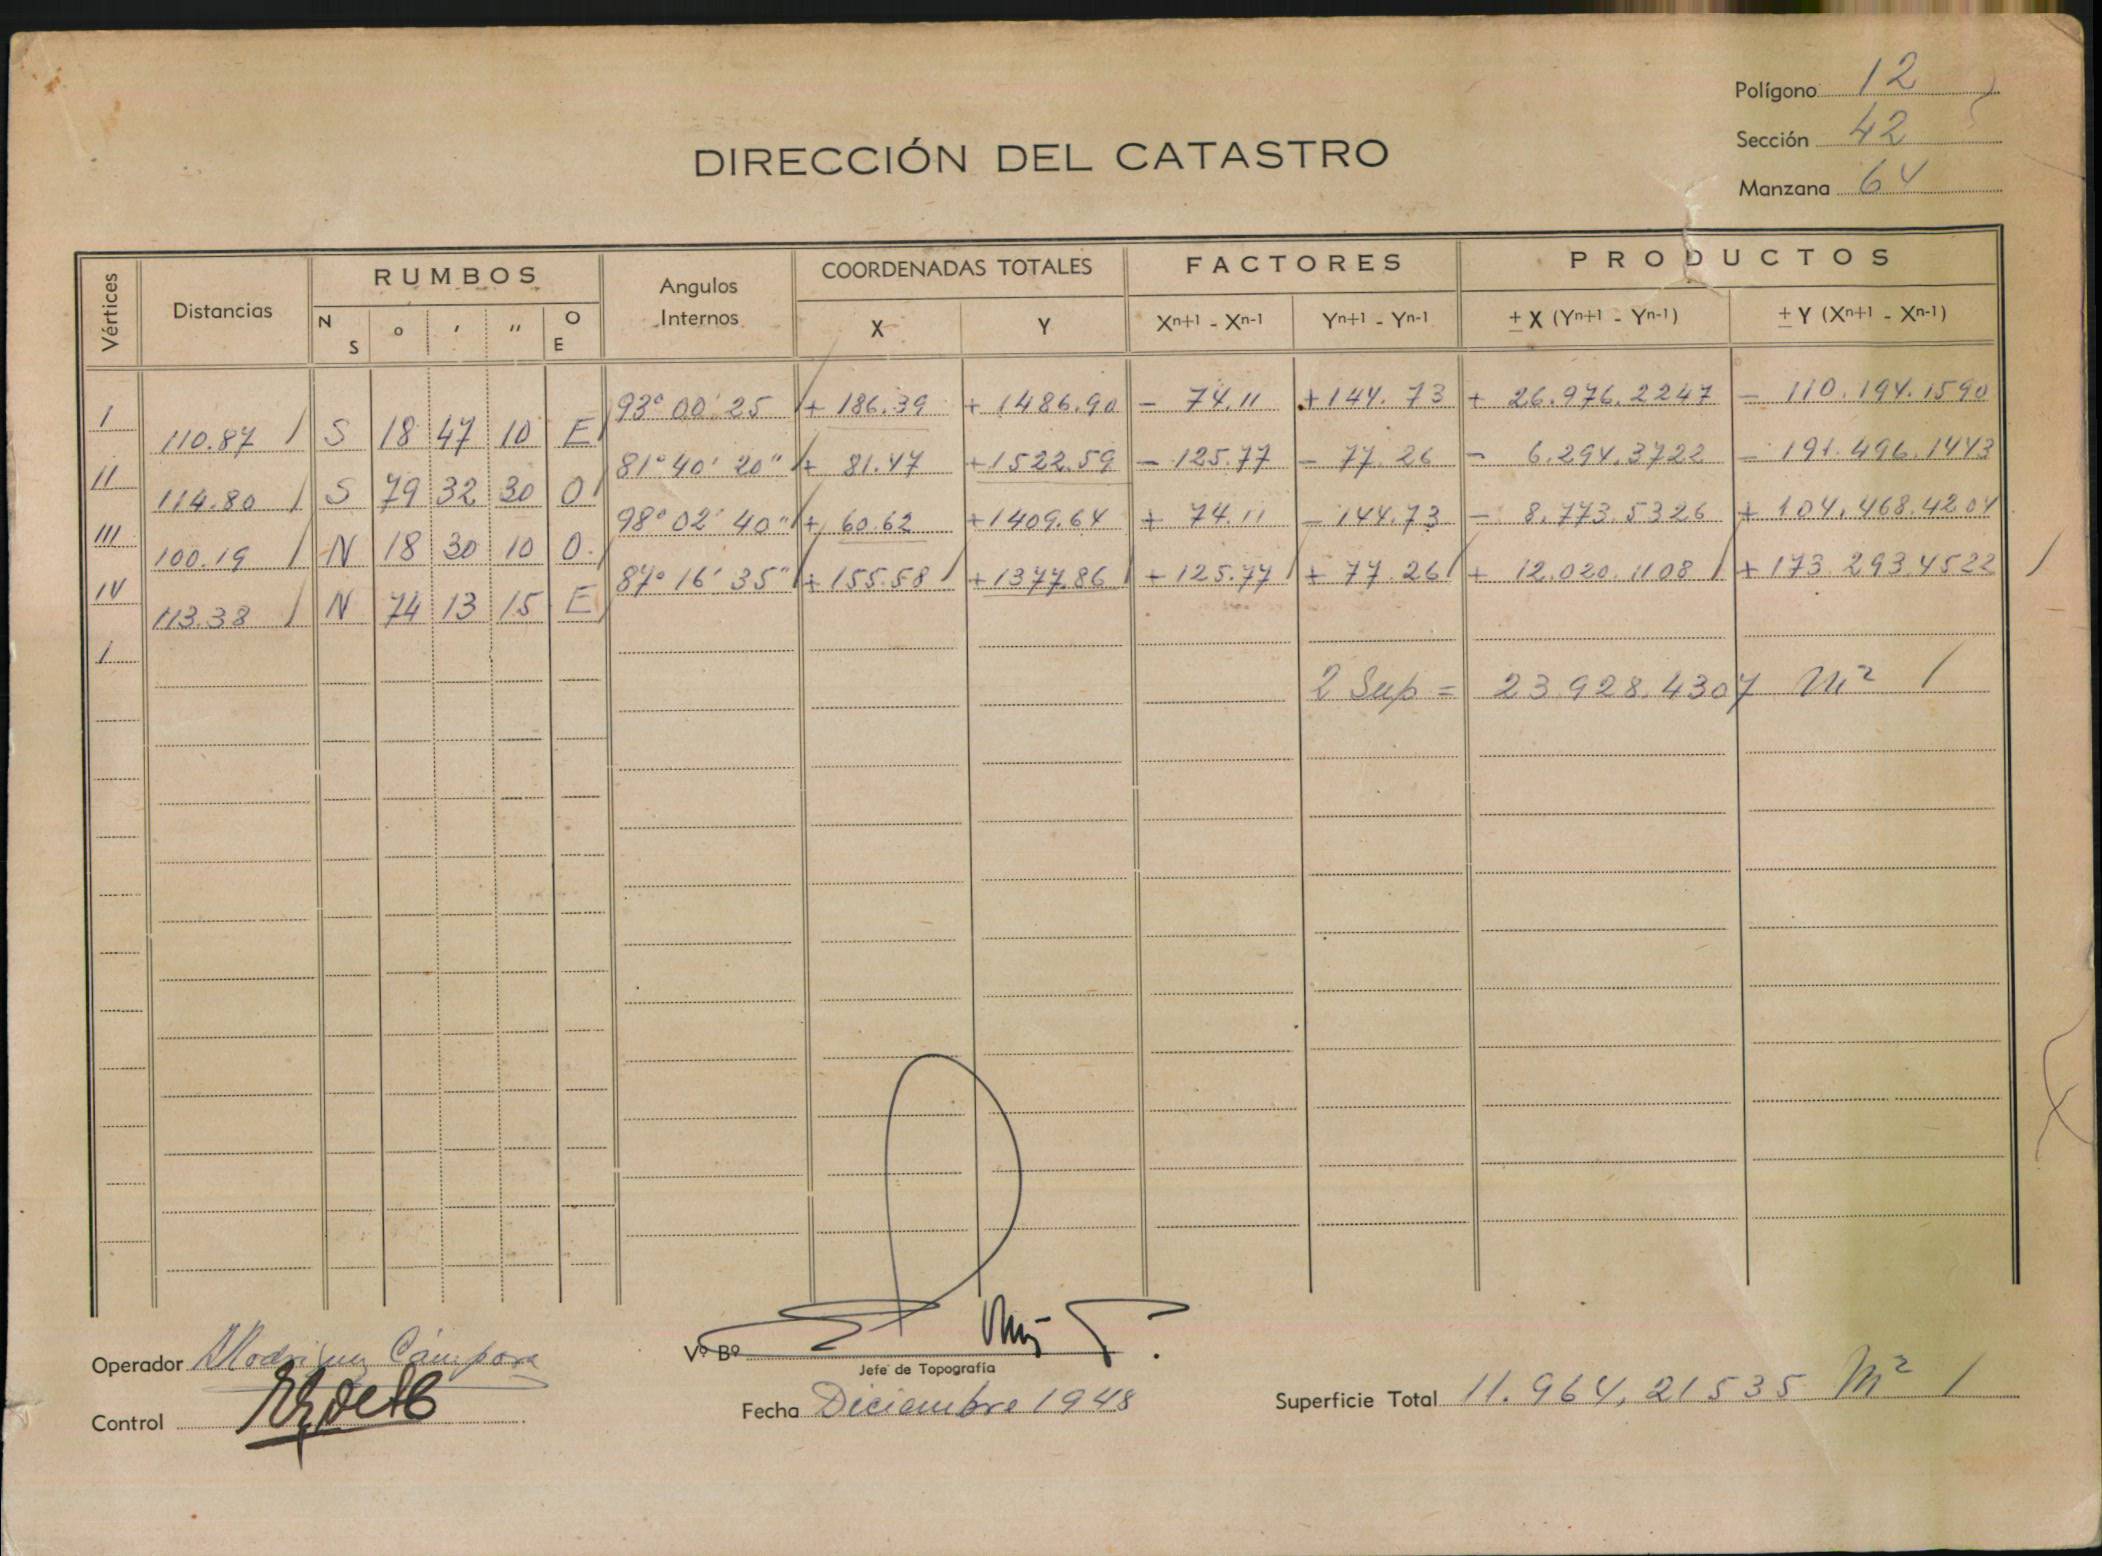 Polígono 12
Sección 42
Manzana 64
DIRECCIÓN DEL CATASTRO
Vértices Distancias RUMBOS Angulos Internos COORDENADAS TOTALES FACTORES PRODUCTOS
N S o ′ ″ O E X Y Xn+1 - Xn-1 Yn+1 - Yn-1 ± X (Yn+1 - Yn-1) ± Y (Xn+1 - Xn-1)
I 93° 00' 25 + 186.39 + 1486.90 - 74.11 + 144.73 + 26.976.2247 - 110.194.1590
110.87 S 18 47 10 E
II 81° 40' 20" + 81.47 + 1522.59 - 125.77 - 77.26 - 6.294.3722 - 191.496.1443
114.80 S 79 32 30 O
III 98° 02' 40" + 60.62 + 1409.64 + 74.11 - 144.73 - 8.773.5326 + 104.468.4204
100.19 N 18 30 10 O.
IV 87° 16' 35" + 155.58 + 1377.86 + 125.77 + 77.26 + 12.020.1108 + 173.293.4522
113.38 N 74 13 15 E
I
2 Sup = 23.928.4307 m²
Operador Rodriguez Cámpora
Control
Vº Bº
Jefe de Topografía
Fecha Diciembre 1948
Superficie Total 11.964,21535 m²